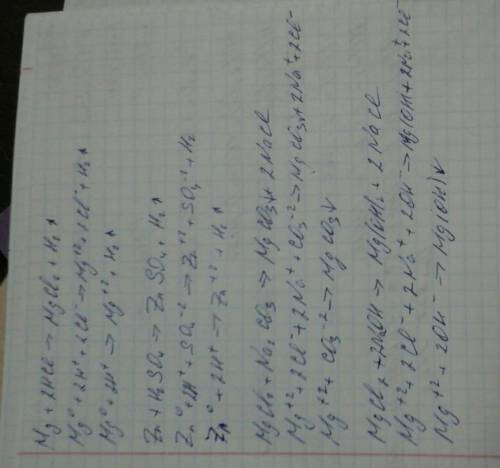 Mg + 2HCl → MgCl₂ + H₂↑
Mg⁰ + 2H⁺ + 2Cl⁻ → Mg⁺² + 2Cl⁻ + H₂↑
Mg⁰ + 2H⁺ → Mg⁺² + H₂↑
Zn + H₂SO₄ → ZnSO₄ + H₂↑
Zn⁰ + 2H⁺ + SO₄⁻² → Zn⁺² + SO₄⁻² + H₂
Zn⁰ + 2H⁺ → Zn⁺² + H₂↑
MgCl₂ + Na₂CO₃ → MgCO₃↓ + 2NaCl
Mg⁺² + 2Cl⁻ + 2Na⁺ + CO₃⁻² → MgCO₃↓ + 2Na⁺ + 2Cl⁻
Mg⁺² + CO₃⁻² → MgCO₃↓
MgCl₂ + 2NaOH → Mg(OH)₂ + 2NaCl
Mg⁺² + 2Cl⁻ + 2Na⁺ + 2OH⁻ → Mg(OH)₂ + 2Na⁺ + 2Cl⁻
Mg⁺² + 2OH⁻ → Mg(OH)₂↓